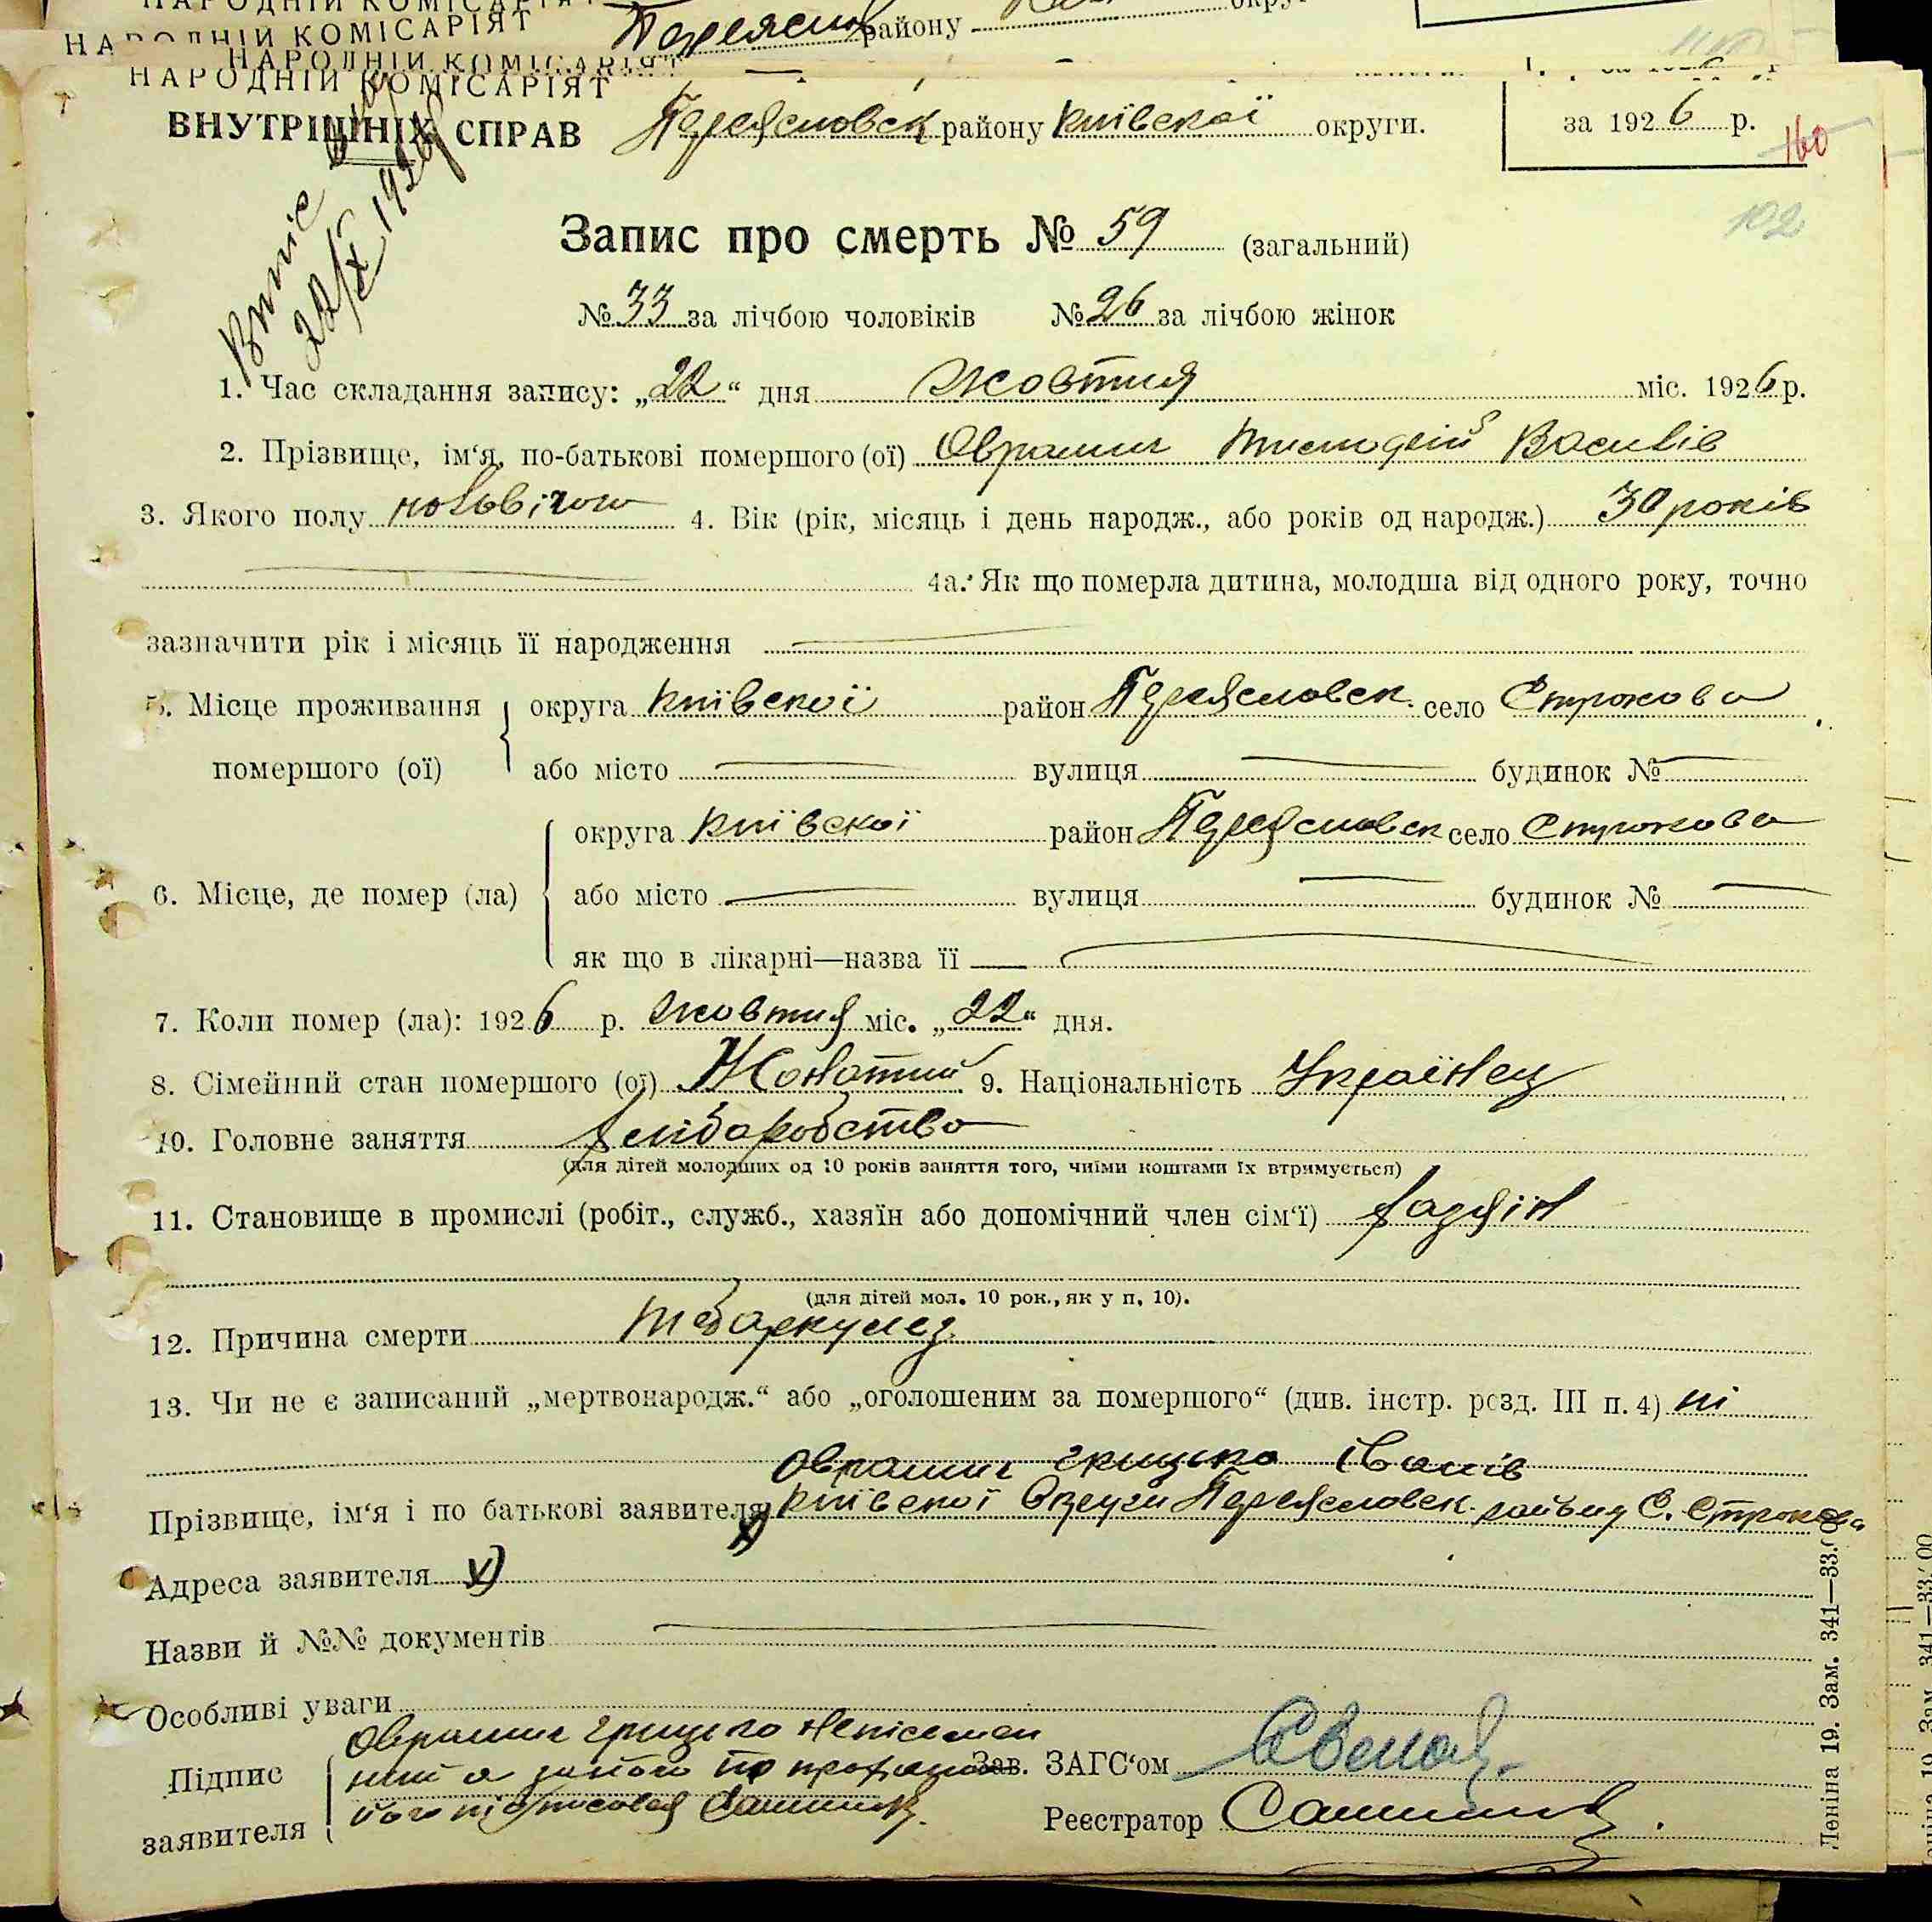 НАРОДНІЙ КОМІСАРІЯТ
Переяслов району
НАРОДНІЙ КОМІСАРІЯТ
НАРОДНІЙ КОМІСАРІЯТ
ВНУТРІШНІХ СПРАВ Переясловск району Київскої округи.
за 1926 р.
160
102
22/X 1926
Запис про смерть № 59 (загальний)
№ 33 за лічбою чоловіків № 26 за лічбою жінок
1. Час складання запису: „22“ дня Жовтня міс. 1926 р.
2. Прізвище, ім‘я, по-батькові помершого (ої) Оврамич Тимофій Василів
3. Якого полу чоловічого 4. Вік (рік, місяць і день народж., або років од народж.) 30 років
4а. Як що померла дитина, молодша від одного року, точно
зазначити рік і місяць її народження
5. Місце проживання округа Київскої район Переясловск. село Строкова
помершого (ої) або місто вулиця будинок №
округа Київскої район Переясловск село Строкова
6. Місце, де помер (ла) або місто вулиця будинок №
як що в лікарні—назва її
7. Коли помер (ла): 1926 р. Жовтня міс. „22“ дня.
8. Сімейний стан помершого (ої) Жонатий 9. Національність Українец
10. Головне заняття хлібаробство
(для дітей молодших од 10 років заняття того, чиїми коштами їх втримується)
11. Становище в промислі (робіт., служб., хазяїн або допомічний член сім‘ї) хазяїн
(для дітей мол. 10 рок., як у п. 10).
12. Причина смерти тебаркулез
13. Чи не є записаний „мертвонародж.“ або „оголошеним за помершого“ (див. інстр. розд. III п. 4) ні
Оврамич грицько Іванів
Прізвище, ім‘я і по батькові заявителя Київскої Округи Переясловск. району С. Строкова
Адреса заявителя
Назви й №№ документів
Особливі уваги
Оврамич грицько неписьмен
Підпис ний а за його по проханню Зав. ЗАГС‘ом
заявителя його підписовся
Реєстратор
Леніна 19. Зам. 341—33.0